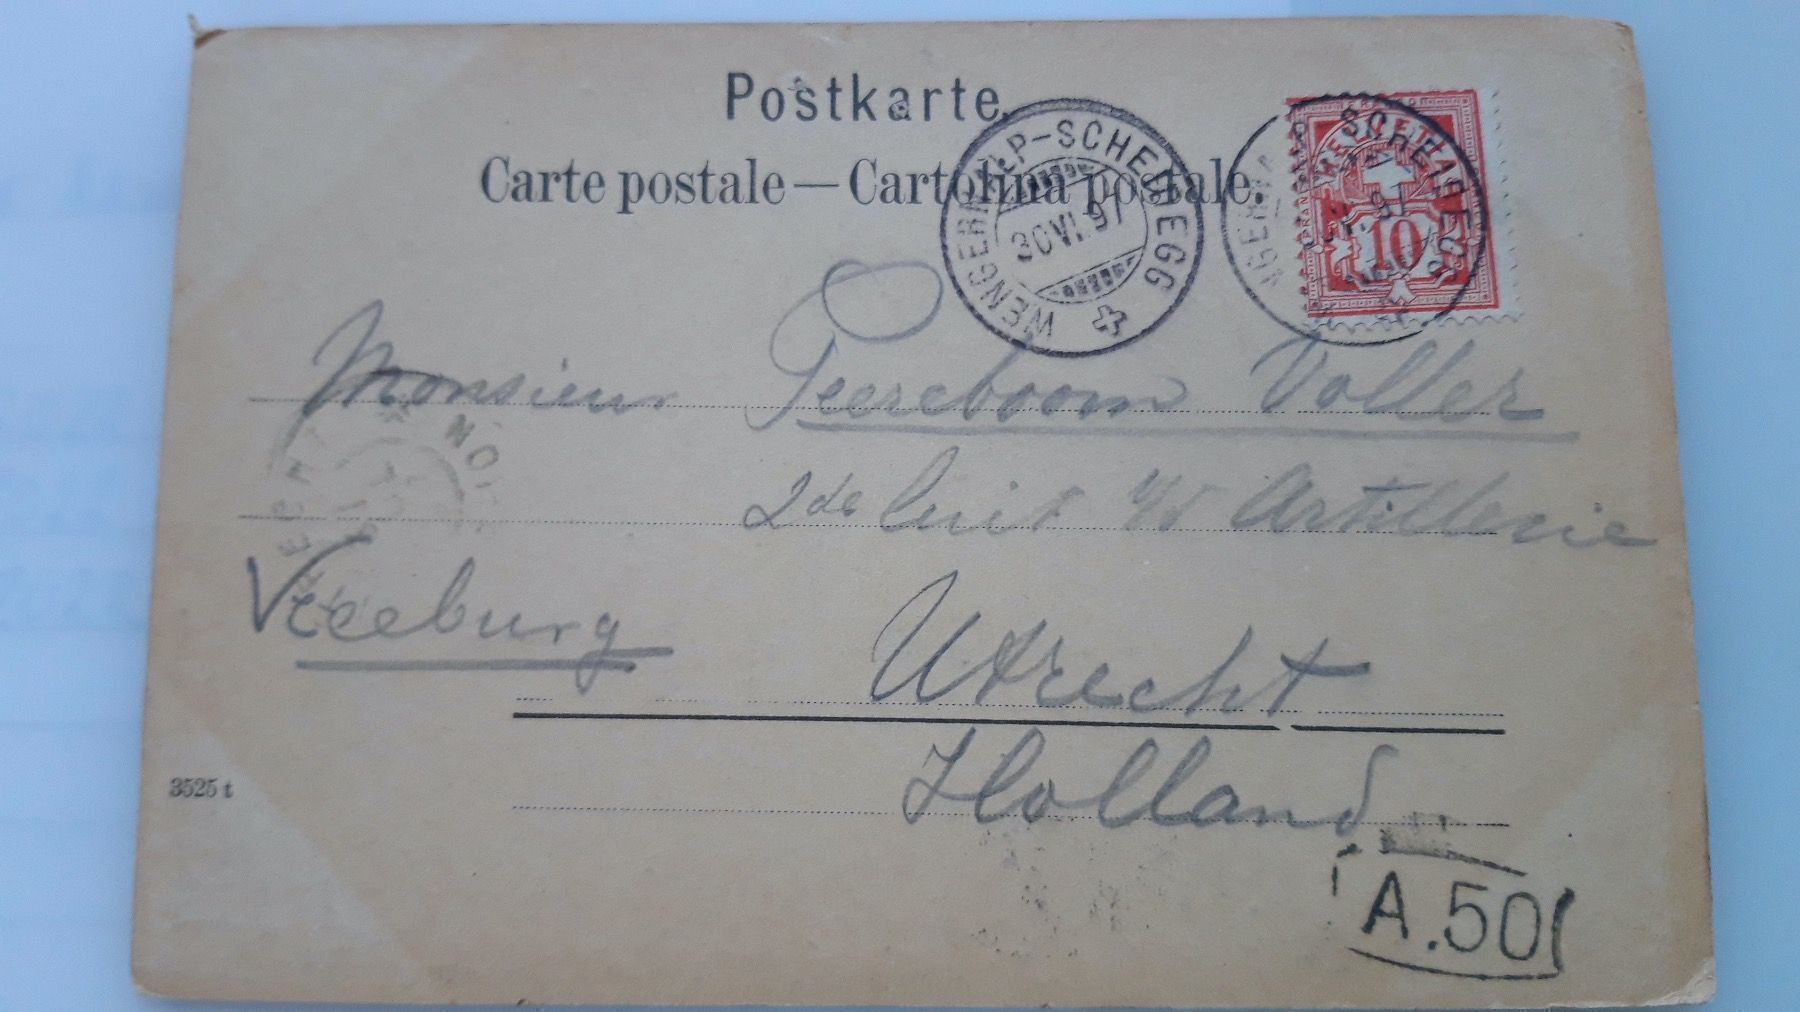 Postkarte.
Carte postale — Cartolina postale.
WENGERNALP-SCHEIDEGG
30 VI 97
FRANCO
HELVETIA
10
SCHEIDEGG
Monsieur Peereboom Voller
2de Luit v/d Artillerie
Vreeburg
Utrecht
Holland
3525 t
A.50